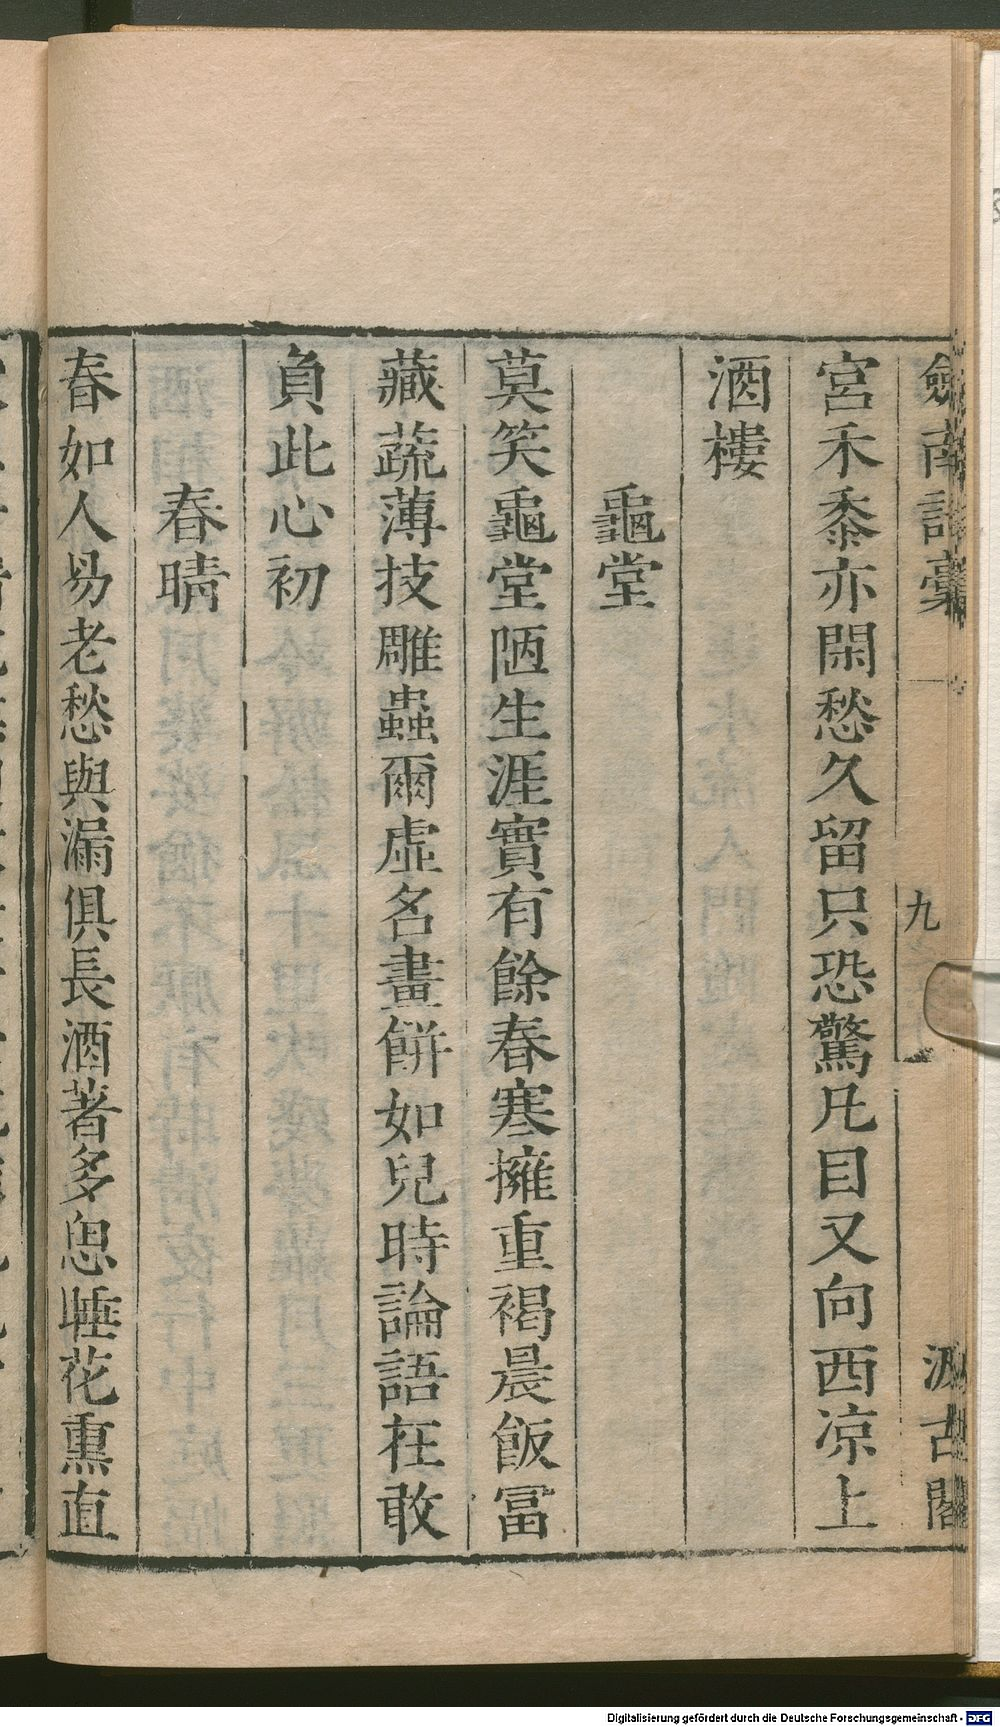 劒南詩稾
九
汲古閣
宮禾黍亦閑愁久留只恐驚凡目又向西凉上
酒樓
龜堂
莫笑龜堂陋生涯實有餘春寒擁重褐晨飯冨
藏蔬薄技雕蟲爾虛名畫餅如兒時論語在敢
負此心初
春晴
春如人易老愁與漏俱長酒著多思睡花熏直
Digitalisierung gefördert durch die Deutsche Forschungsgemeinschaft - DFG